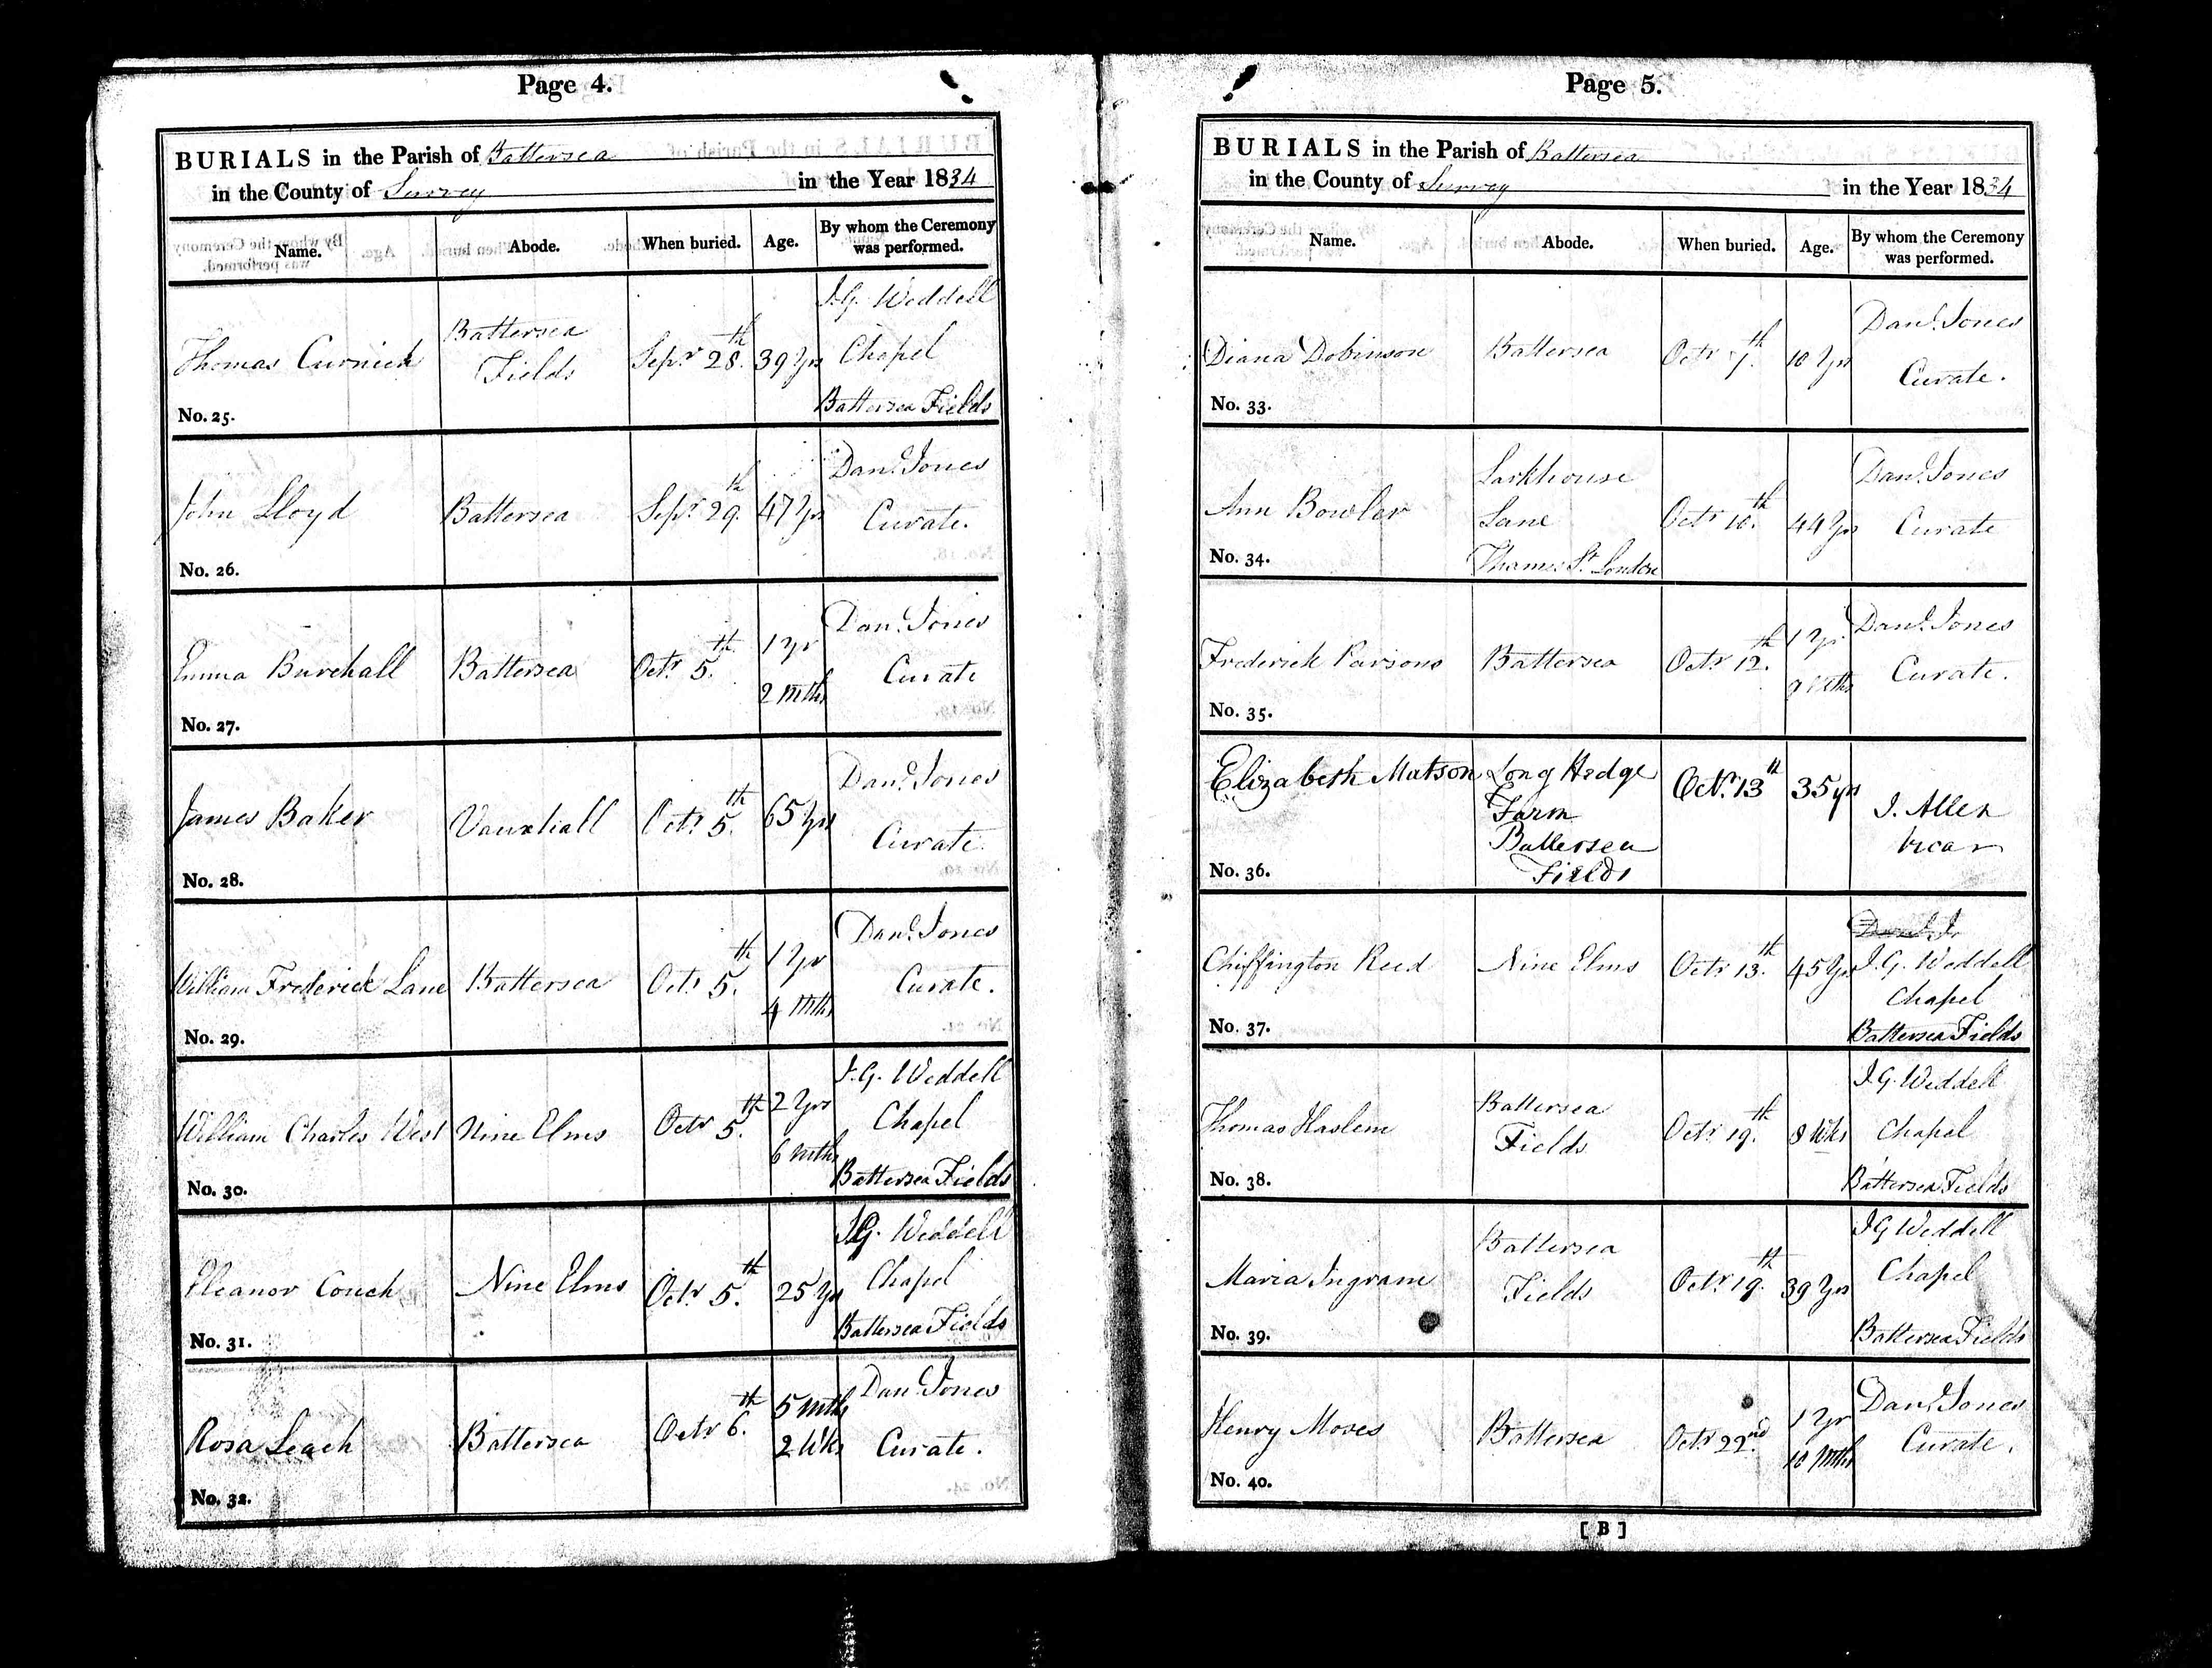 Page 4.
BURIALS in the Parish of Battersea
in the County of Surrey in the Year 1834
Name. Abode. When buried. Age. By whom the Ceremony was performed.
Thomas Curnick Battersea Fields Sepr 28th. 39 Yrs J.G. Weddell Chapel Battersea Fields
No. 25.
John Lloyd Battersea Sepr 29th. 47 Yrs Danl. Jones Curate.
No. 26.
Emma Burchall Battersea Octr 5th. 1 Yr 2 Mths Danl. Jones Curate
No. 27.
James Baker Vauxhall Octr 5th. 65 Yrs Danl. Jones Curate.
No. 28.
William Frederick Lane Battersea Octr 5th. 1 Yr 4 Mths Danl. Jones Curate.
No. 29.
William Charles West Nine Elms Octr 5th. 2 Yrs 6 Mths J.G. Weddell Chapel Battersea Fields
No. 30.
Eleanor Couch Nine Elms Octr 5th. 25 Yrs J.G. Weddell Chapel Battersea Fields
No. 31.
Rosa Leach Battersea Octr 6th. 5 Mths 2 Wks Danl. Jones Curate.
No. 32.
Page 5.
BURIALS in the Parish of Battersea
in the County of Surrey in the Year 1834
Name. Abode. When buried. Age. By whom the Ceremony was performed.
Diana Dobinson Battersea Octr 7th. 10 Yrs Danl. Jones Curate.
No. 33.
Ann Bowler Larkhouse Lane Thames St. London Octr 10th. 44 Yrs Danl. Jones Curate
No. 34.
Frederick Parsons Battersea Octr 12th. 1 Yr. 9 Mths Danl. Jones Curate.
No. 35.
Elizabeth Matson Long Hedge Farm Battersea Fields Octr. 13th 35 yrs J. Allen Vicar
No. 36.
Chiffington Reed Nine Elms Octr 13th. 45 Yrs J.G. Weddell Chapel Battersea Fields
No. 37.
Thomas Haslem Battersea Fields Octr 19th. 8 Wks J.G. Weddell Chapel Battersea Fields
No. 38.
Maria Ingram Battersea Fields Octr 19th. 39 Yrs J G Weddell Chapel Battersea Fields
No. 39.
Henry Moses Battersea Octr 22nd. 1 Yr 10 Mths Danl. Jones Curate.
No. 40.
[ B ]